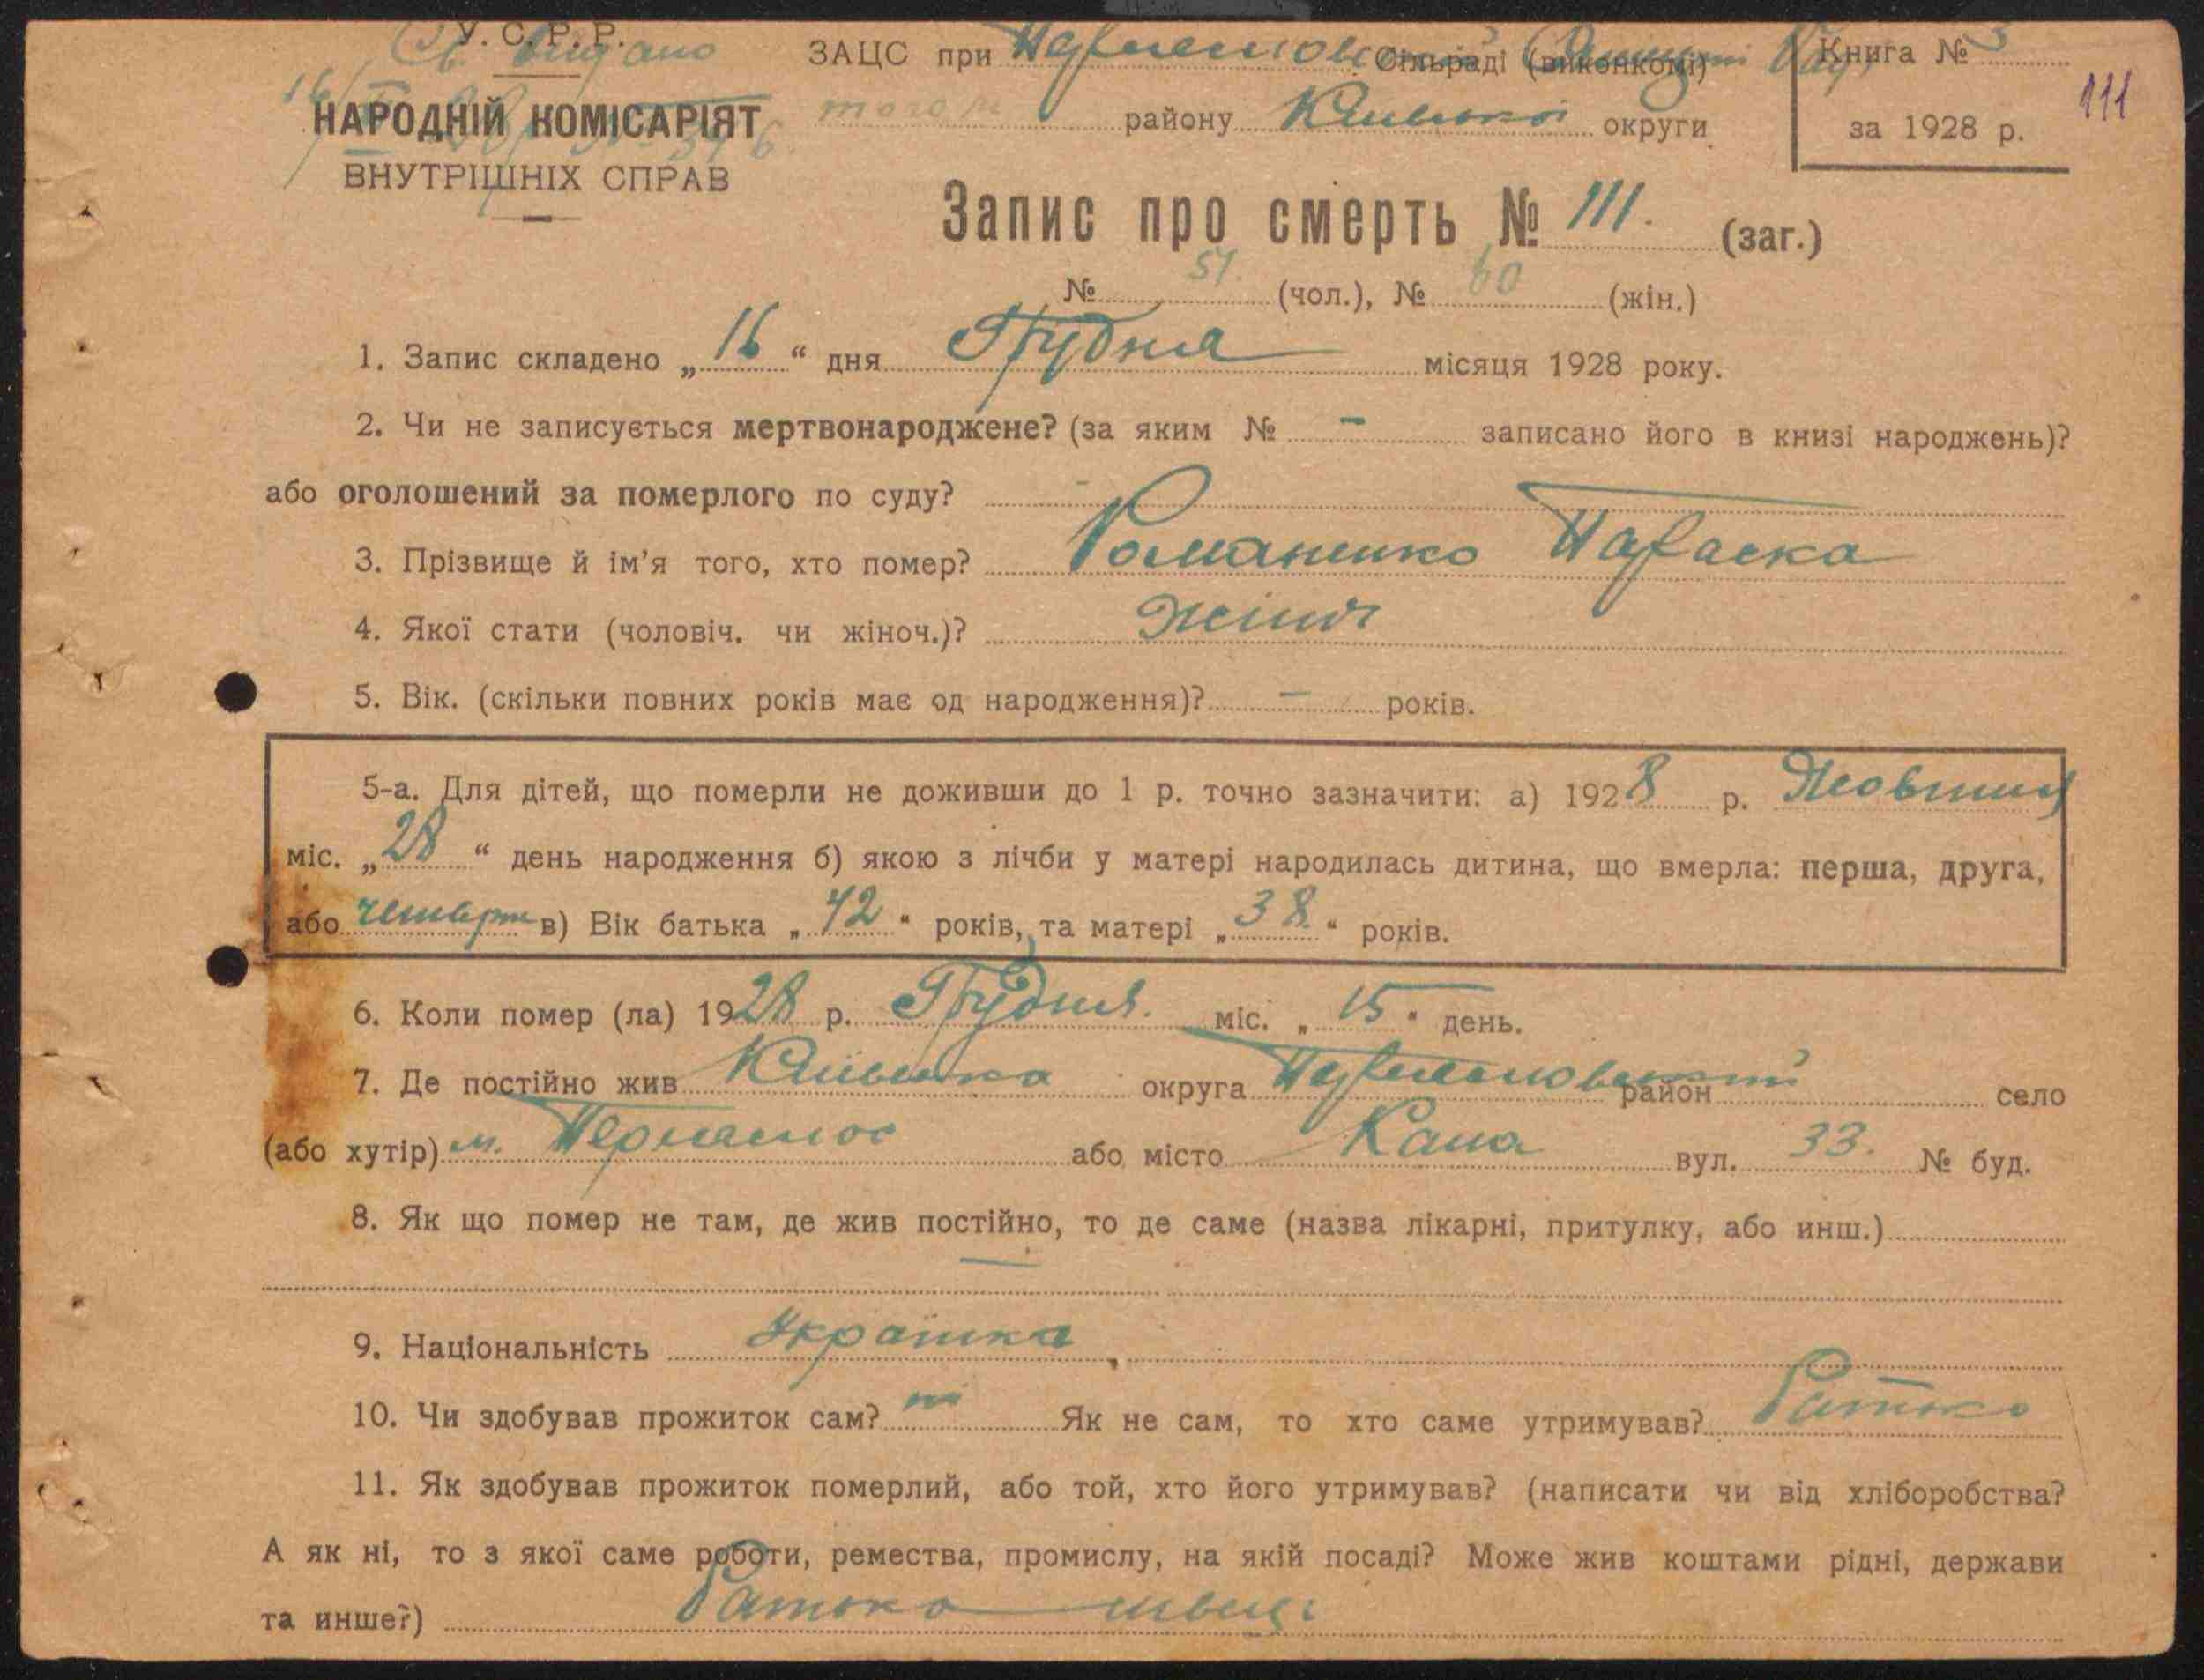 У. С. Р. Р.
НАРОДНІЙ КОМІСАРІЯТ
ВНУТРІШНІХ СПРАВ
ЗАЦС при Сільраді (виконкомі)
району Київської округи
Книга № 3
за 1928 р.
111
Запис про смерть № 111. (заг.)
№ 51. (чол.), № 60 (жін.)
1. Запис складено „16“ дня Грудня місяця 1928 року.
2. Чи не записується мертвонароджене? (за яким № – записано його в книзі народжень)?
або оголошений за померлого по суду? -
3. Прізвище й ім’я того, хто помер? Романенко Параска
4. Якої стати (чоловіч. чи жіноч.)? Жіноч
5. Вік. (скільки повних років має од народження)? — років.
5-а. Для дітей, що померли не доживши до 1 р. точно зазначити: а) 1928 р. Жовтня
міс. „28“ день народження б) якою з лічби у матері народилась дитина, що вмерла: перша, друга,
або четверта в) Вік батька „42“ років, та матері „38“ років.
6. Коли помер (ла) 1928 р. Грудня. міс. „15“ день.
7. Де постійно жив Київська округа район село
(або хутір) м. або місто вул. 33. № буд.
8. Як що помер не там, де жив постійно, то де саме (назва лікарні, притулку, або инш.)
—
9. Національність Українка
10. Чи здобував прожиток сам? ні Як не сам, то хто саме утримував? Батько
11. Як здобував прожиток померлий, або той, хто його утримував? (написати чи від хліборобства?
А як ні, то з якої саме роботи, ремества, промислу, на якій посаді? Може жив коштами рідні, держави
та инше?) Батько швець